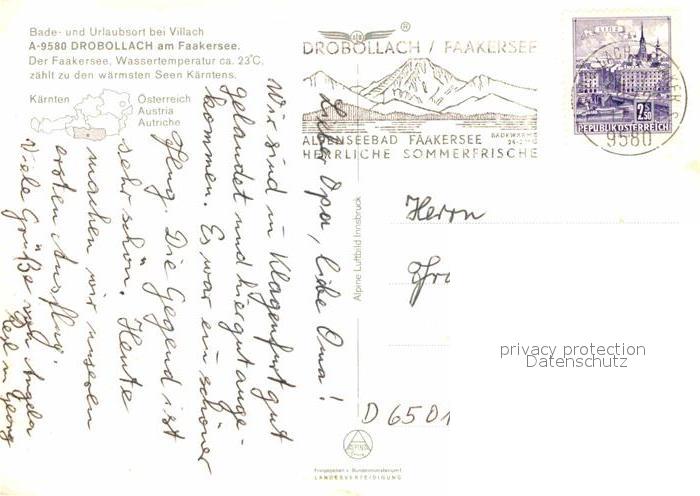 Bade- und Urlaubsort bei Villach
A-9580 DROBOLLACH am Faakersee.
Der Faakersee, Wassertemperatur ca. 23°C,
zählt zu den wärmsten Seen Kärntens.
Kärnten
Österreich
Austria
Autriche
Lieber Opa, liebe Oma!
Wir sind in Klagenfurt gut
gelandet und hier gut ange-
kommen. Es war ein schöner
Flug. Die Gegend ist
sehr schön. Heute
machen wir unseren
ersten Ausflug.
Viele Grüße von Angela
und Georg
Alpine Luftbild Innsbruck
®
DROBOLLACH / FAAKERSEE
ALPENSEEBAD FAAKERSEE
BADEWÄRME
HERRLICHE SOMMERFRISCHE
LINZ
2 S 50
REPUBLIK ÖSTERREICH
9580
Herrn
D 6501
privacy protection
Datenschutz
ALPINE
Freigegeben v. Bundesministerium f.
LANDESVERTEIDIGUNG